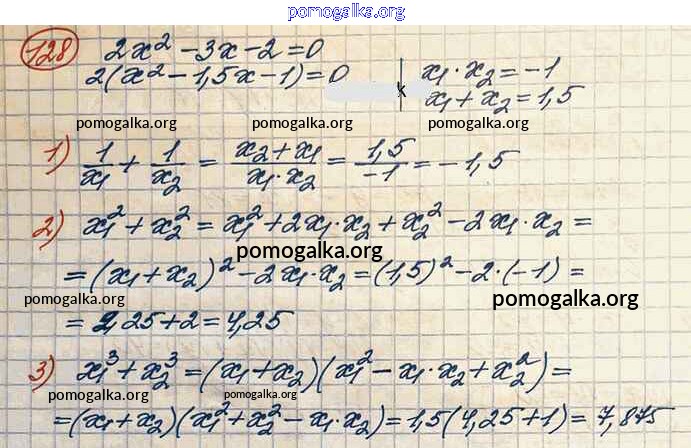 pomogalka.org
128 2x² - 3x - 2 = 0
2(x² - 1,5x - 1) = 0
x₁ · x₂ = -1
x₁ + x₂ = 1,5
pomogalka.org pomogalka.org pomogalka.org
1) 1/x₁ + 1/x₂ = (x₂ + x₁)/(x₁ · x₂) = 1,5/-1 = -1,5
2) x₁² + x₂² = x₁² + 2x₁ · x₂ + x₂² - 2x₁ · x₂ =
pomogalka.org
= (x₁ + x₂)² - 2x₁ · x₂ = (1,5)² - 2 · (-1) =
pomogalka.org pomogalka.org
= 2,25 + 2 = 4,25
3) x₁³ + x₂³ = (x₁ + x₂)(x₁² - x₁ · x₂ + x₂²) =
pomogalka.org pomogalka.org pomogalka.org
= (x₁ + x₂)(x₁² + x₂² - x₁ · x₂) = 1,5(4,25 + 1) = 7,875